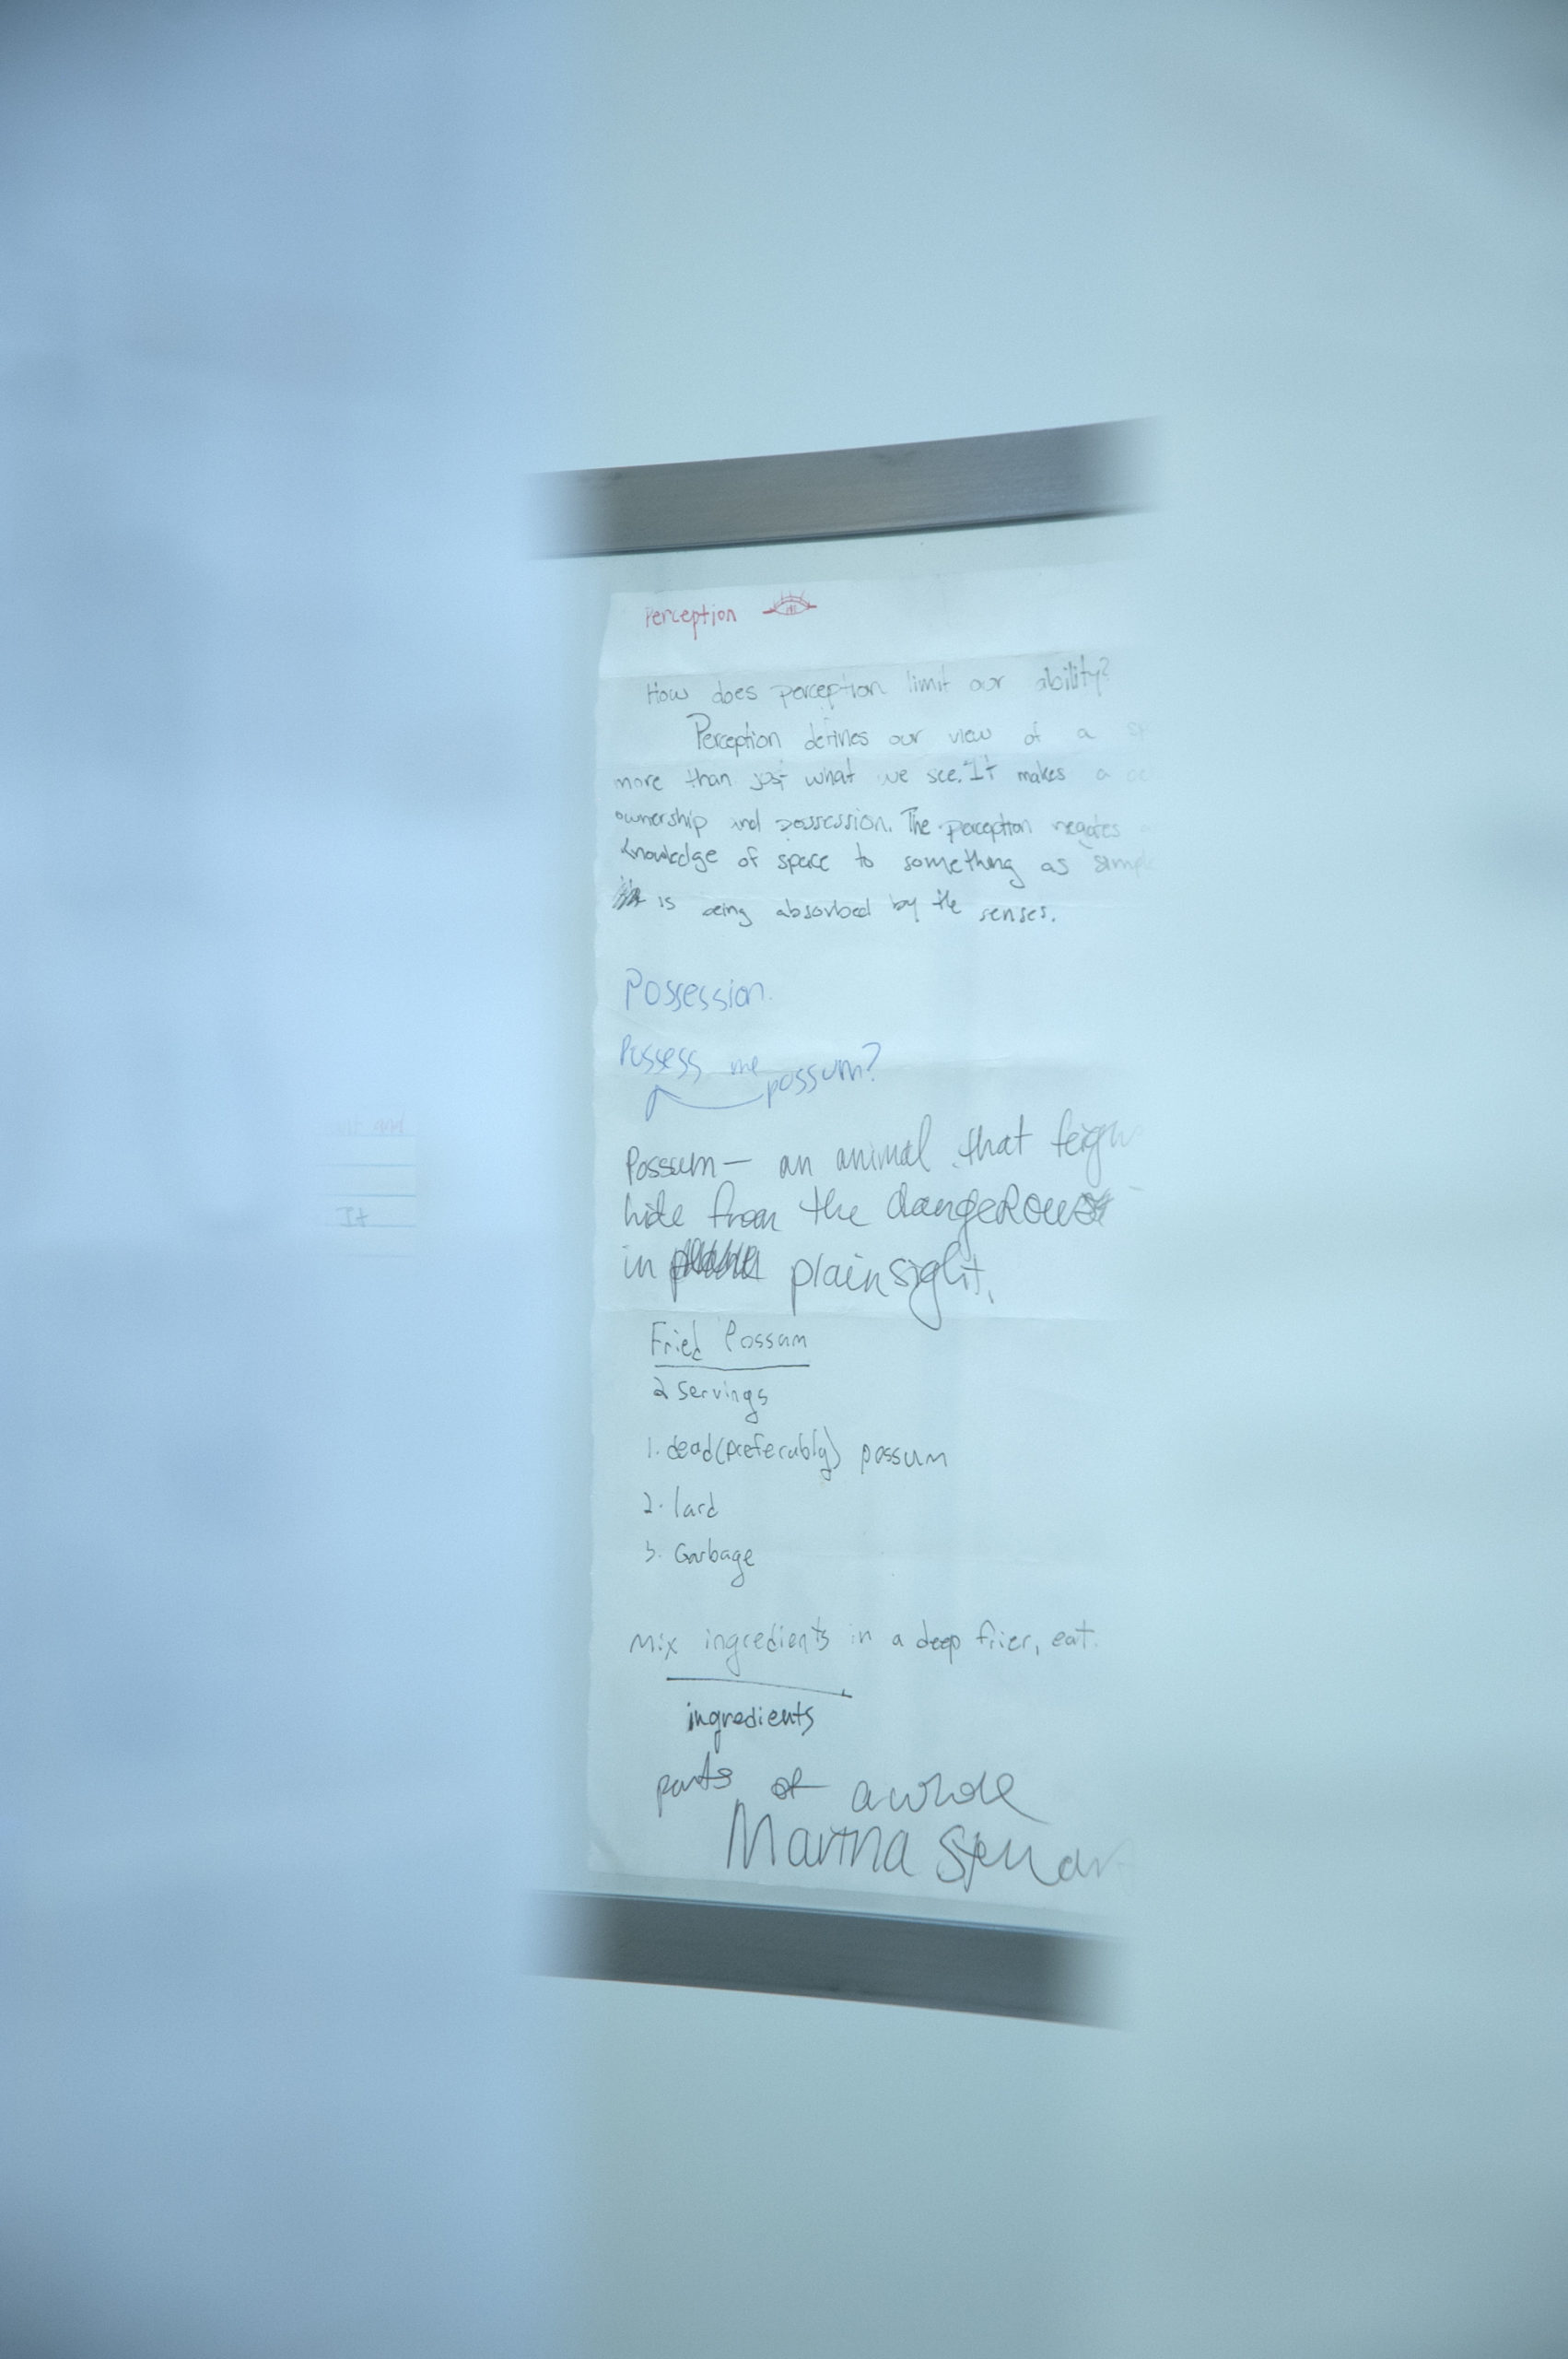 Perception
How does perception limit our ability?
Perception defines our view of a
more than just what we see. It makes a
ownership and possession. The perception negates
knowledge of space to something as
is being absorbed by the senses.
Possession.
Possess me possum?
Possum — an animal that feigns
hide from the dangerous
in plain sight.
Fried Possum
2 servings
1. dead (preferably) possum
2. lard
3. Garbage
Mix ingredients in a deep frier, eat.
ingredients
parts of a whole
Martha Stewart